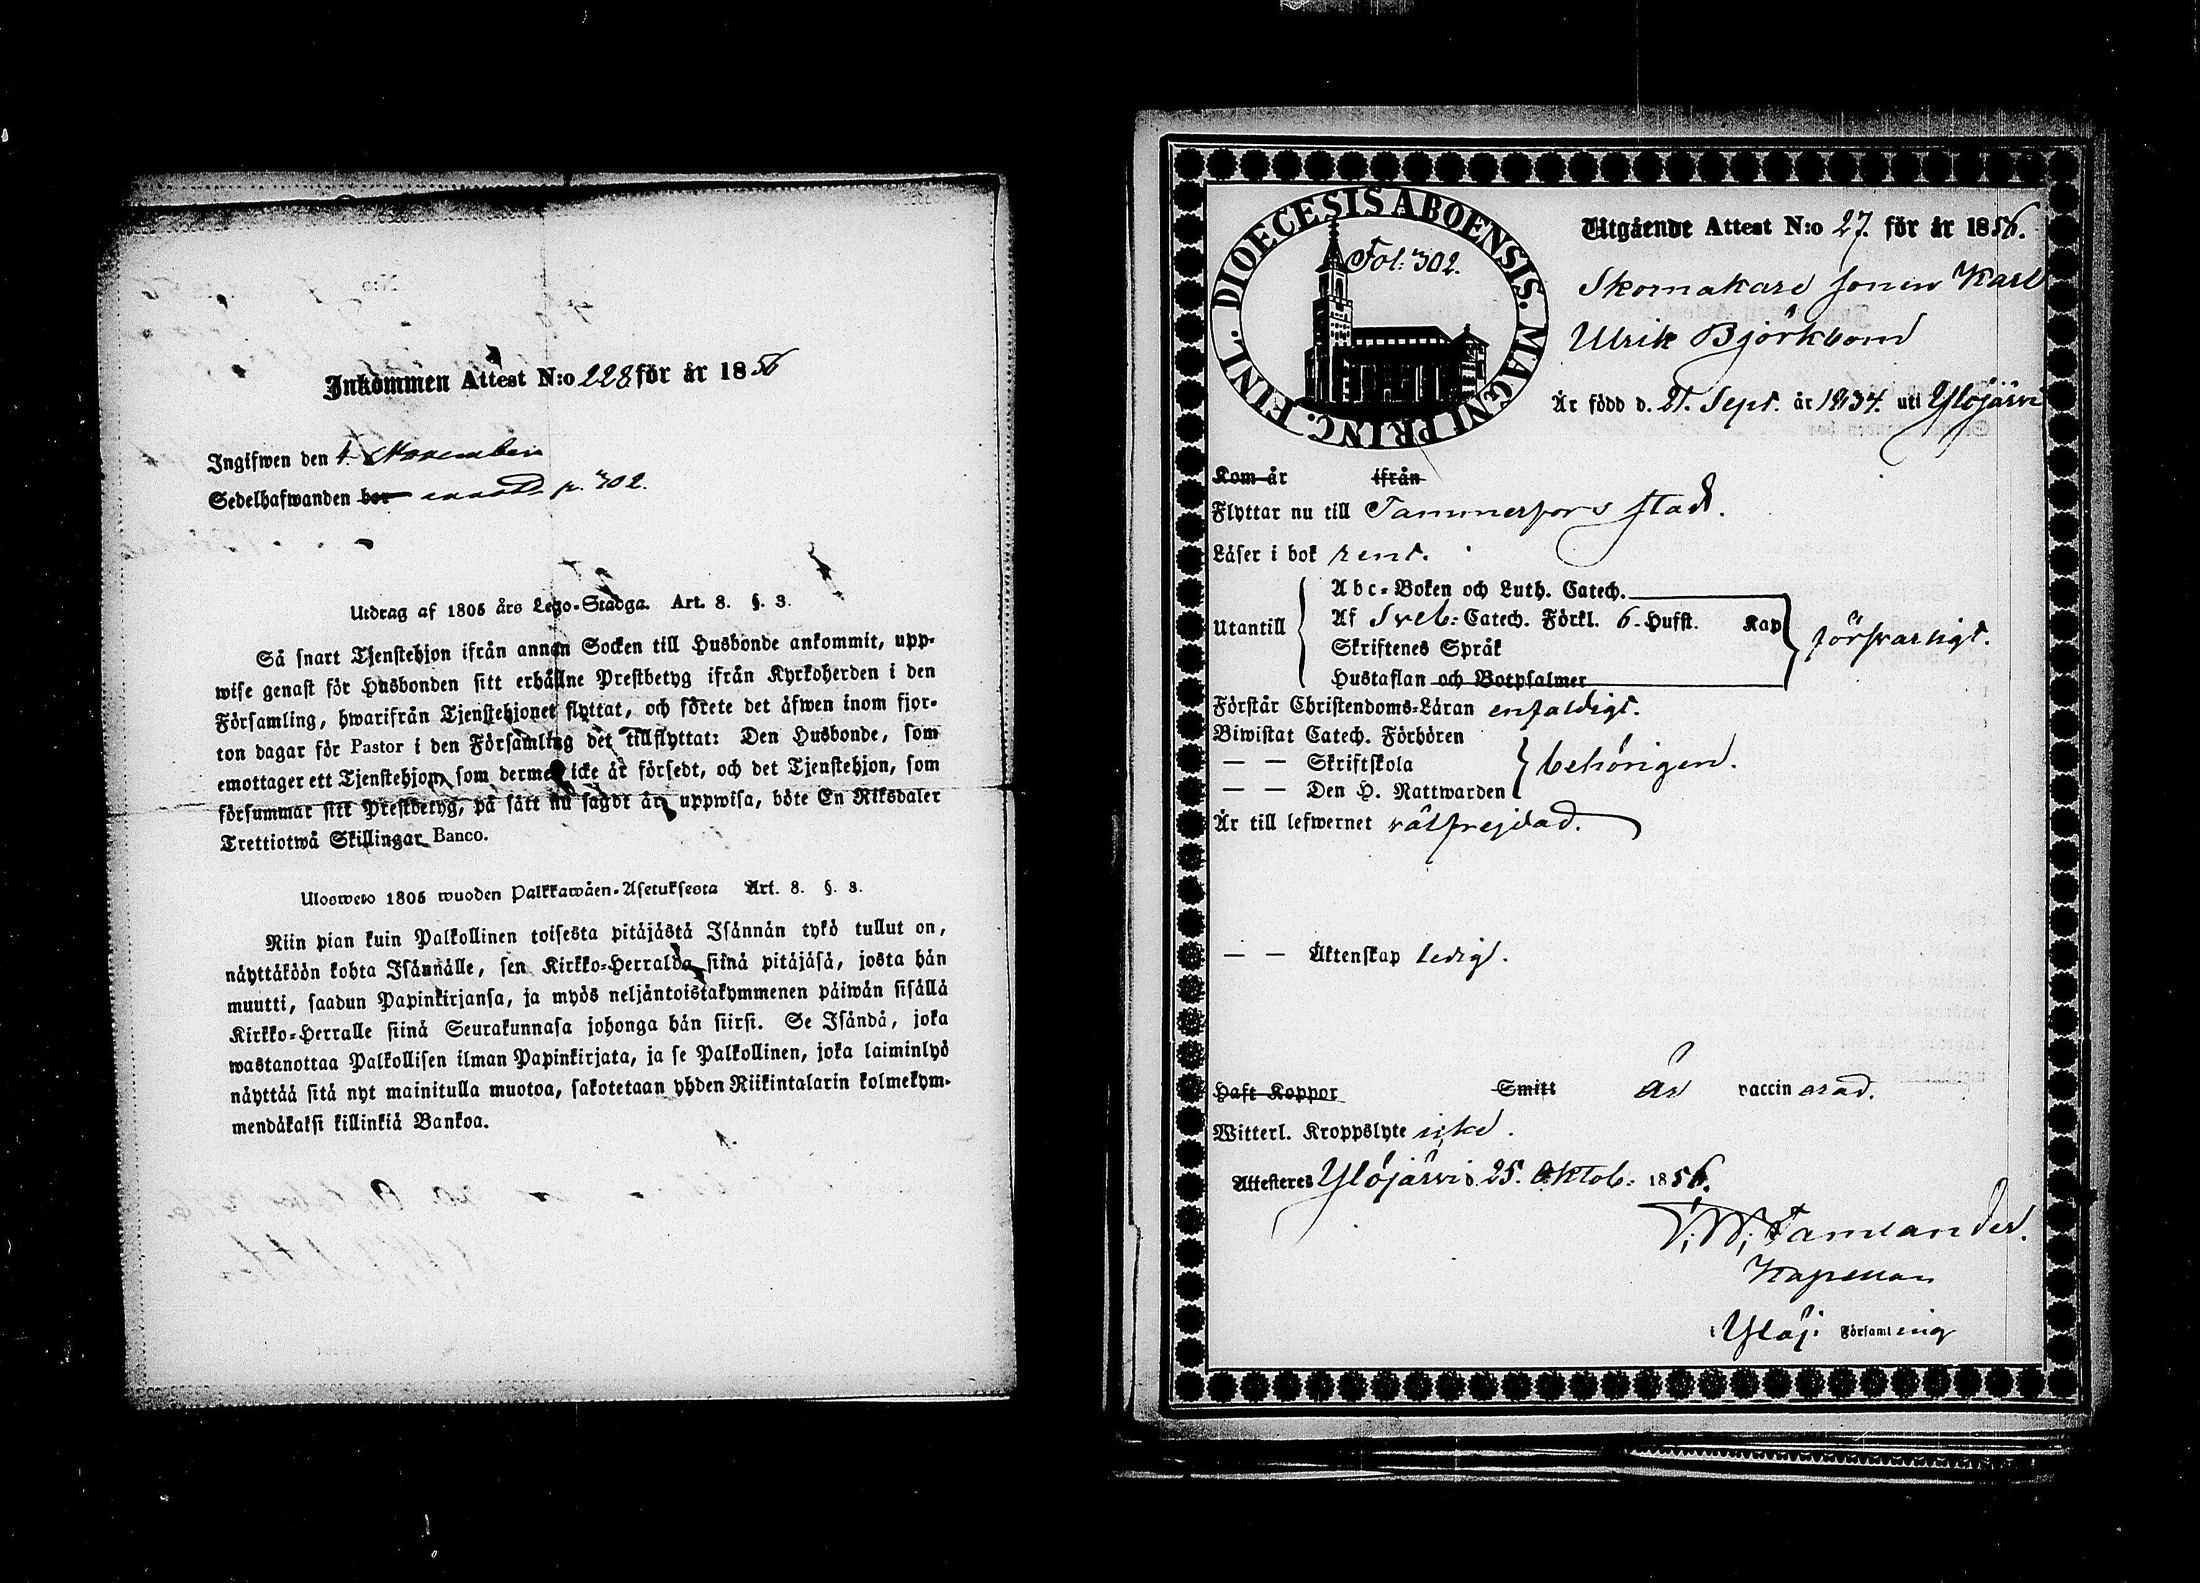 Inkommen Attest N:o 228 för år 1856
Ingifwen den 1. November
Sedelhafwanden bor p. 302.
Utdrag af 1805 års Lego-Stadga. Art. 8. §. 3.
Så snart Tjenstehjon ifrån annan Socken till Husbonde ankommit, upp-
wise genast för Husbonden sitt erhållne Prestbetyg ifrån Kyrkoherden i den
Församling, hwarifrån Tjenstehjonet flyttat, och förete det äfwen inom fjor-
ton dagar för Pastor i den Församling det tillflyttat: Den Husbonde, som
emottager ett Tjenstehjon, som dermed icke är försedt, och det Tjenstehjon, som
försummar sitt Prestbetyg, på sätt nu sagdt är, uppwisa, böte En Riksdaler
Trettiotwå Skillingar Banco.
Ulosweto 1805 wuoden Palkkawäen-Asetuksesta Art. 8. §. 3.
Niin pian kuin Palkollinen toisesta pitäjästä Isännän tykö tullut on,
näyttäköön kohta Isännälle, sen Kirkko-Herralda siinä pitäjäsä, josta hän
muutti, saadun Papinkirjansa, ja myös neljäntoistakymmenen päiwän sisällä
Kirkko-Herralle siinä Seurakunnasa johonga hän siirsi. Se Isändä, joka
wastanottaa Palkollisen ilman Papinkirjata, ja se Palkollinen, joka laiminlyö
näyttää sitä nyt mainitulla muotoa, sakotetaan yhden Riikintalarin kolmekym-
mendäkaksi killinkiä Bankoa.
DIOECESIS ABOENSIS. MAGNI PRINC. FINL.
Fol: 302.
Utgående Attest N:o 27. för år 1856.
Skomakare sonen Karl
Ulrik Björkbom
Är född d. 21. Sept. år 1834. uti Ylöjärvi
Kom år ifrån
Flyttar nu till Tammerfors stad.
Läser i bok rent.
Utantill
Abc-Boken och Luth. Catech.
Af Sveb: Catech. Förkl. 6. Hufst. Kap
Skriftenes Språk
Hustaflan och Botpsalmer
försvarligt.
Förstår Christendoms-Läran enfaldigt.
Biwistat Catech. Förhören
— — Skriftskola
— — Den H. Nattwarden
behörigen.
Är till lefwernet välfrejdad.
— — Äktenskap ledig.
Haft Koppor Smitt är vaccinerad.
Witterl. Kroppslyte icke.
Attesteres Ylöjärvi d. 25. Oktob: 1856.
Kapellan
i Ylöj: Församling